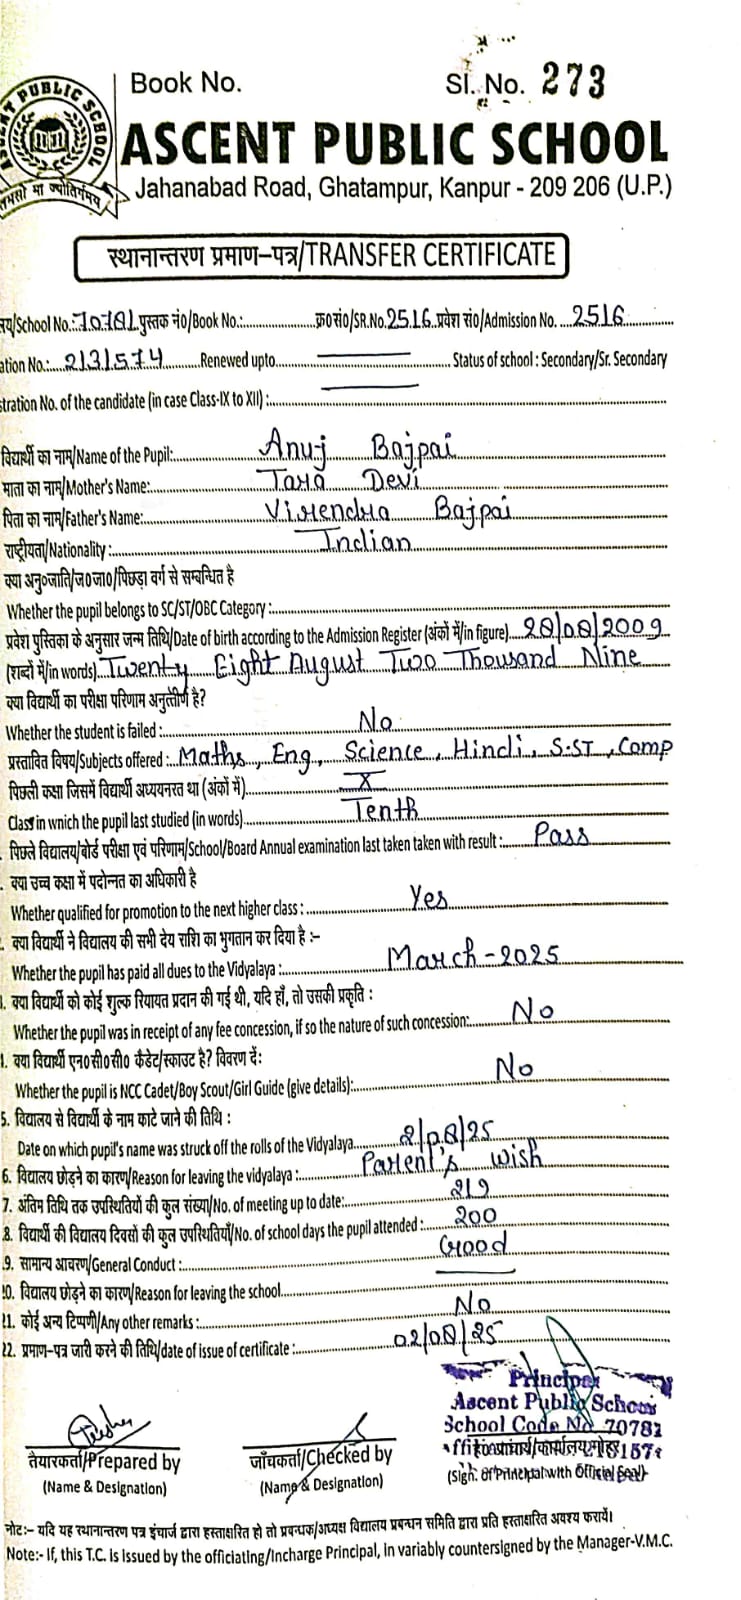 Book No. Sl. No. 273
ASCENT PUBLIC SCHOOL
Jahanabad Road, Ghatampur, Kanpur - 209 206 (U.P.)
स्थानान्तरण प्रमाण–पत्र/TRANSFER CERTIFICATE
School No.: 70781 पुस्तक नं०/Book No.: क्र०सं०/SR.No. 2516 प्रवेश सं०/Admission No. 2516
ation No.: 2131574 Renewed upto Status of school : Secondary/Sr. Secondary
stration No. of the candidate (in case Class-IX to XII) :
विद्यार्थी का नाम/Name of the Pupil: Anuj Bajpai
माता का नाम/Mother's Name: Tara Devi
पिता का नाम/Father's Name: Virendra Bajpai
राष्ट्रीयता/Nationality : Indian
क्या अनु०जाति/ज०जा०/पिछड़ा वर्ग से सम्बन्धित है
Whether the pupil belongs to SC/ST/OBC Category :
प्रवेश पुस्तिका के अनुसार जन्म तिथि/Date of birth according to the Admission Register (अंकों में/in figure) 28/08/2009
(शब्दों में/in words) Twenty Eight August Two Thousand Nine
क्या विद्यार्थी का परीक्षा परिणाम अनुत्तीर्ण है?
Whether the student is failed : No
प्रस्तावित विषय/Subjects offered : Maths, Eng, Science, Hindi, S.ST, Comp
पिछली कक्षा जिसमें विद्यार्थी अध्ययनरत था (अंकों में) X
Class in wnich the pupil last studied (in words) Tenth
पिछले विद्यालय/बोर्ड परीक्षा एवं परिणाम/School/Board Annual examination last taken taken with result : Pass
क्या उच्च कक्षा में पदोन्नत का अधिकारी है
Whether qualified for promotion to the next higher class : Yes
क्या विद्यार्थी ने विद्यालय की सभी देय राशि का भुगतान कर दिया है :-
Whether the pupil has paid all dues to the Vidyalaya : March-2025
क्या विद्यार्थी को कोई शुल्क रियायत प्रदान की गई थी, यदि हाँ, तो उसकी प्रकृति :
Whether the pupil was in receipt of any fee concession, if so the nature of such concession: No
क्या विद्यार्थी एन०सी०सी० कैडेट/स्काउट है? विवरण दें:
Whether the pupil is NCC Cadet/Boy Scout/Girl Guide (give details): No
5. विद्यालय से विद्यार्थी के नाम काटे जाने की तिथि :
Date on which pupil's name was struck off the rolls of the Vidyalaya 2/08/25
6. विद्यालय छोड़ने का कारण/Reason for leaving the vidyalaya : Parent's wish
7. अंतिम तिथि तक उपस्थितियों की कुल संख्या/No. of meeting up to date: 219
8. विद्यार्थी की विद्यालय दिवसों की कुल उपस्थितियाँ/No. of school days the pupil attended : 200
9. सामान्य आचरण/General Conduct : Good
0. विद्यालय छोड़ने का कारण/Reason for leaving the school
21. कोई अन्य टिप्पणी/Any other remarks : No
22. प्रमाण–पत्र जारी करने की तिथि/date of issue of certificate : 02/08/25
Principal
Ascent Public School
School Code No 70781
तैयारकर्ता/Prepared by जाँचकर्ता/Checked by
(Name & Designation) (Name & Designation) (Sign. of Principal with Official Seal)
नोट:- यदि यह स्थानान्तरण पत्र इंचार्ज द्वारा हस्ताक्षरित हो तो प्रबन्धक/अध्यक्ष विद्यालय प्रबन्धन समिति द्वारा प्रति हस्ताक्षरित अवश्य करायें।
Note:- If, this T.C. is Issued by the officiating/Incharge Principal, in variably countersigned by the Manager-V.M.C.